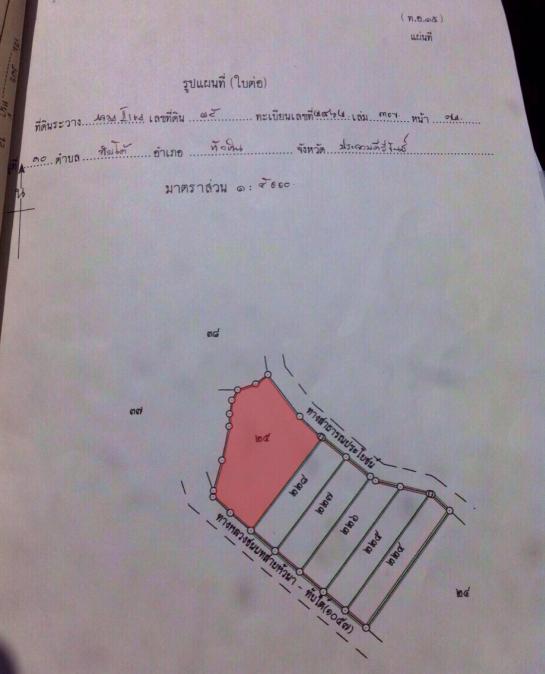 (ท.อ.๑๕)
แผ่นที่
รูปแผนที่ (ใบต่อ)
ที่ดินระวาง เลขที่ดิน ๑๕ ทะเบียนเลขที่ เล่ม ๓๐๖ หน้า
๓๐ ตำบล ทับใต้ อำเภอ หัวหิน จังหวัด ประจวบคีรีขันธ์
น
มาตราส่วน ๑ :
๓๘
๓๗
๒๕
ทางสาธารณประโยชน์
๒๒๘
๒๒๗
๒๒๖
๒๒๕
๒๒๔
ทางหลวงชนบทสายหัวนา - ทับใต้(๑๐๕๗)
๒๔